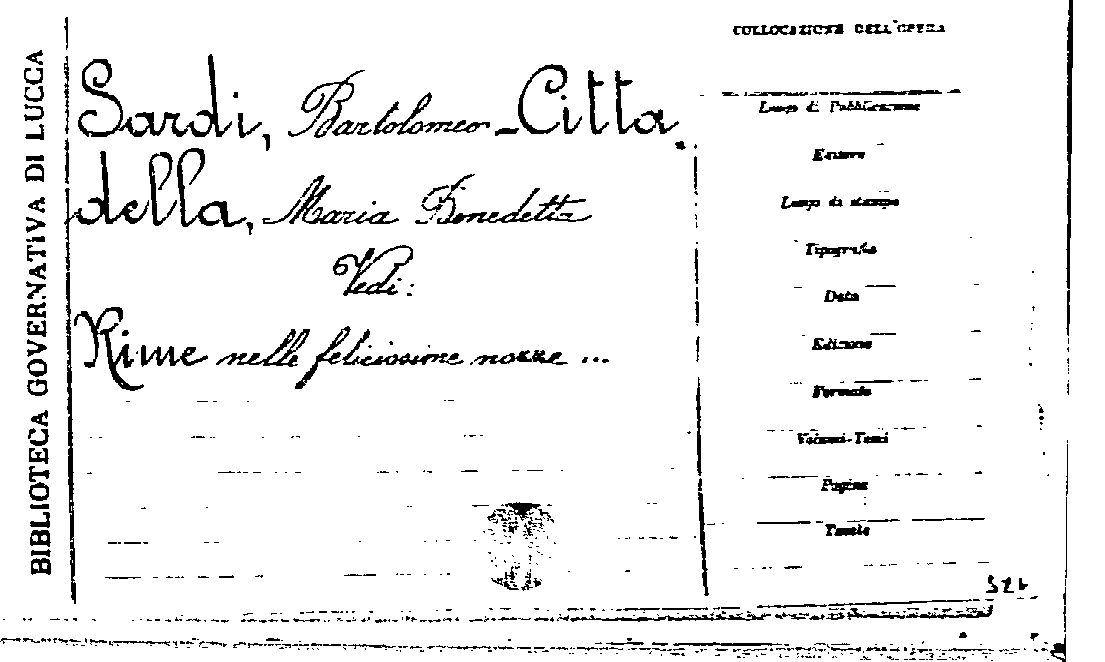 BIBLIOTECA GOVERNATIVA DI LUCCA
Sardi, Bartolomeo - Citta
della, Maria Benedetta
Vedi:
Rime nelle felicissime nozze ...
COLLOCAZIONE DELL'OPERA
Luogo di Pubblicazione
Editore
Luogo di stampa
Tipografia
Data
Edizione
Formato
Volumi-Tomi
Pagine
Tavole